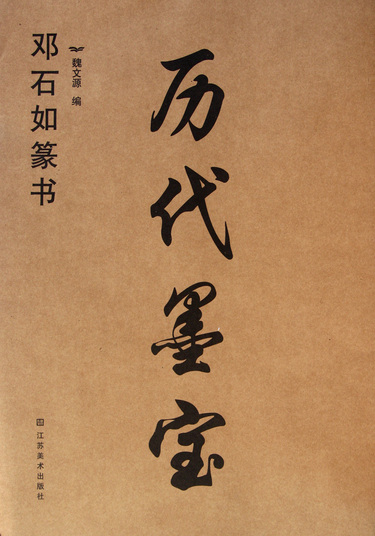 历代墨宝
邓石如篆书
魏文源 编
江苏美术出版社